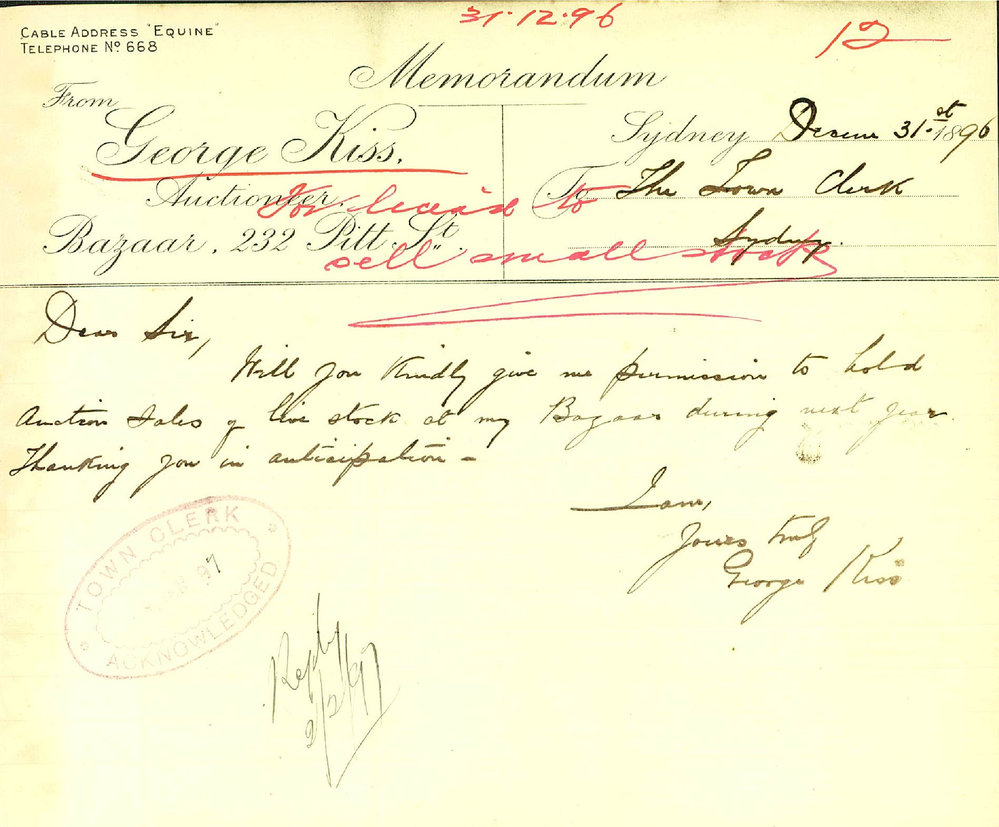 31·12·96
12
CABLE ADDRESS "EQUINE"
TELEPHONE No 668
Memorandum
From
George Kiss.
Auctioneer.
Bazaar, 232 Pitt St.
Sydney Decem 31.st 1896
To The Town Clerk
Sydney.
For license to
sell small stock
Dear Sir,
Will you Kindly give me permission to hold
Auction Sales of live stock at my Bazaar during next year.
Thanking you in anticipation –
I am,
Yours truly
George Kiss
TOWN CLERK
97
ACKNOWLEDGED
Reply
2/2/97